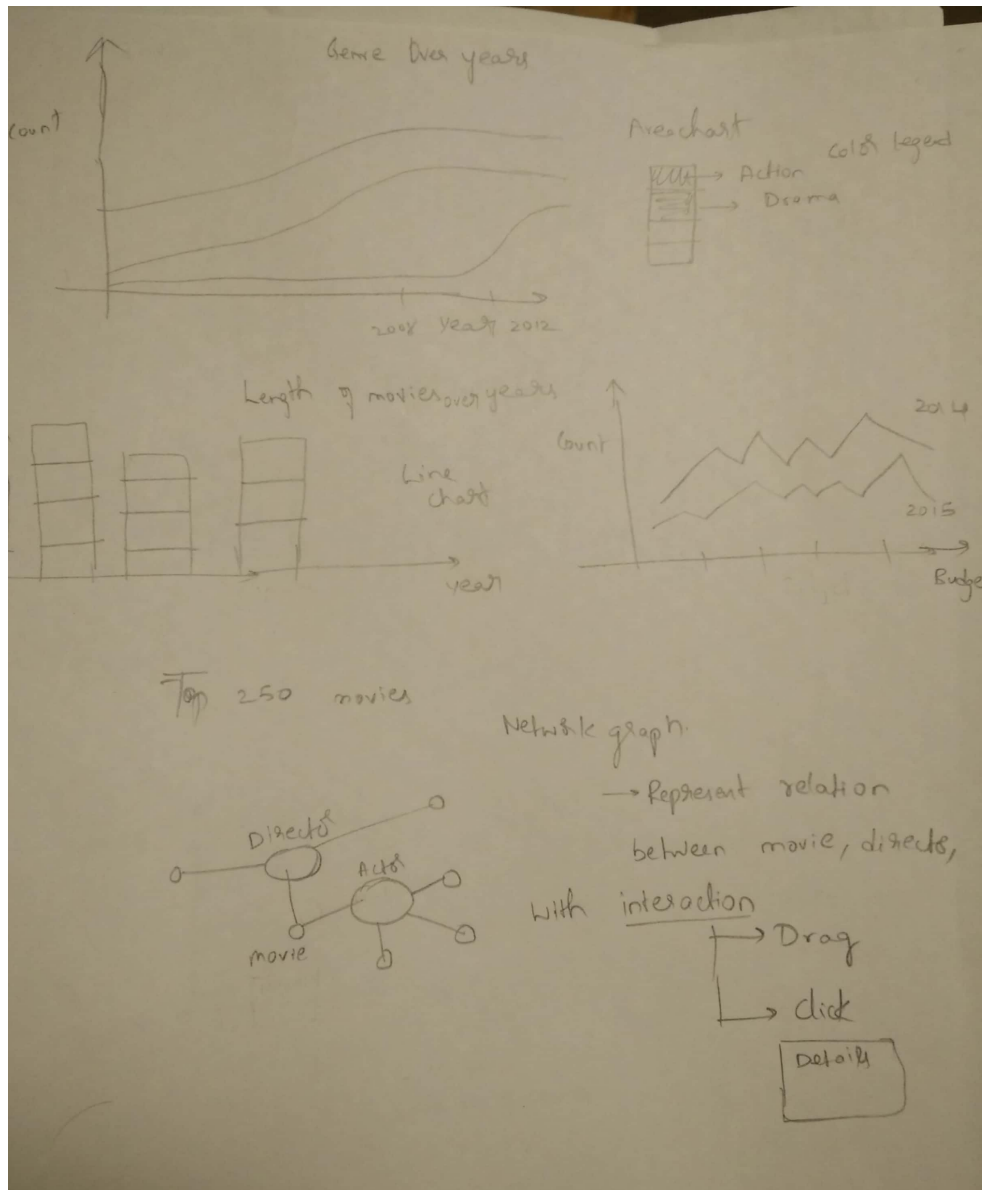 Genre Over years
Count
Area chart
Color legend
Action
Drama
2008 year 2012
Length of movies over years
Line
chart
year
Count
2014
2015
Budge
Top 250 movies
Network graph.
→ Represent relation
between movie, directs,
with interaction
Drag
Click
Details
Director
Actor
movie